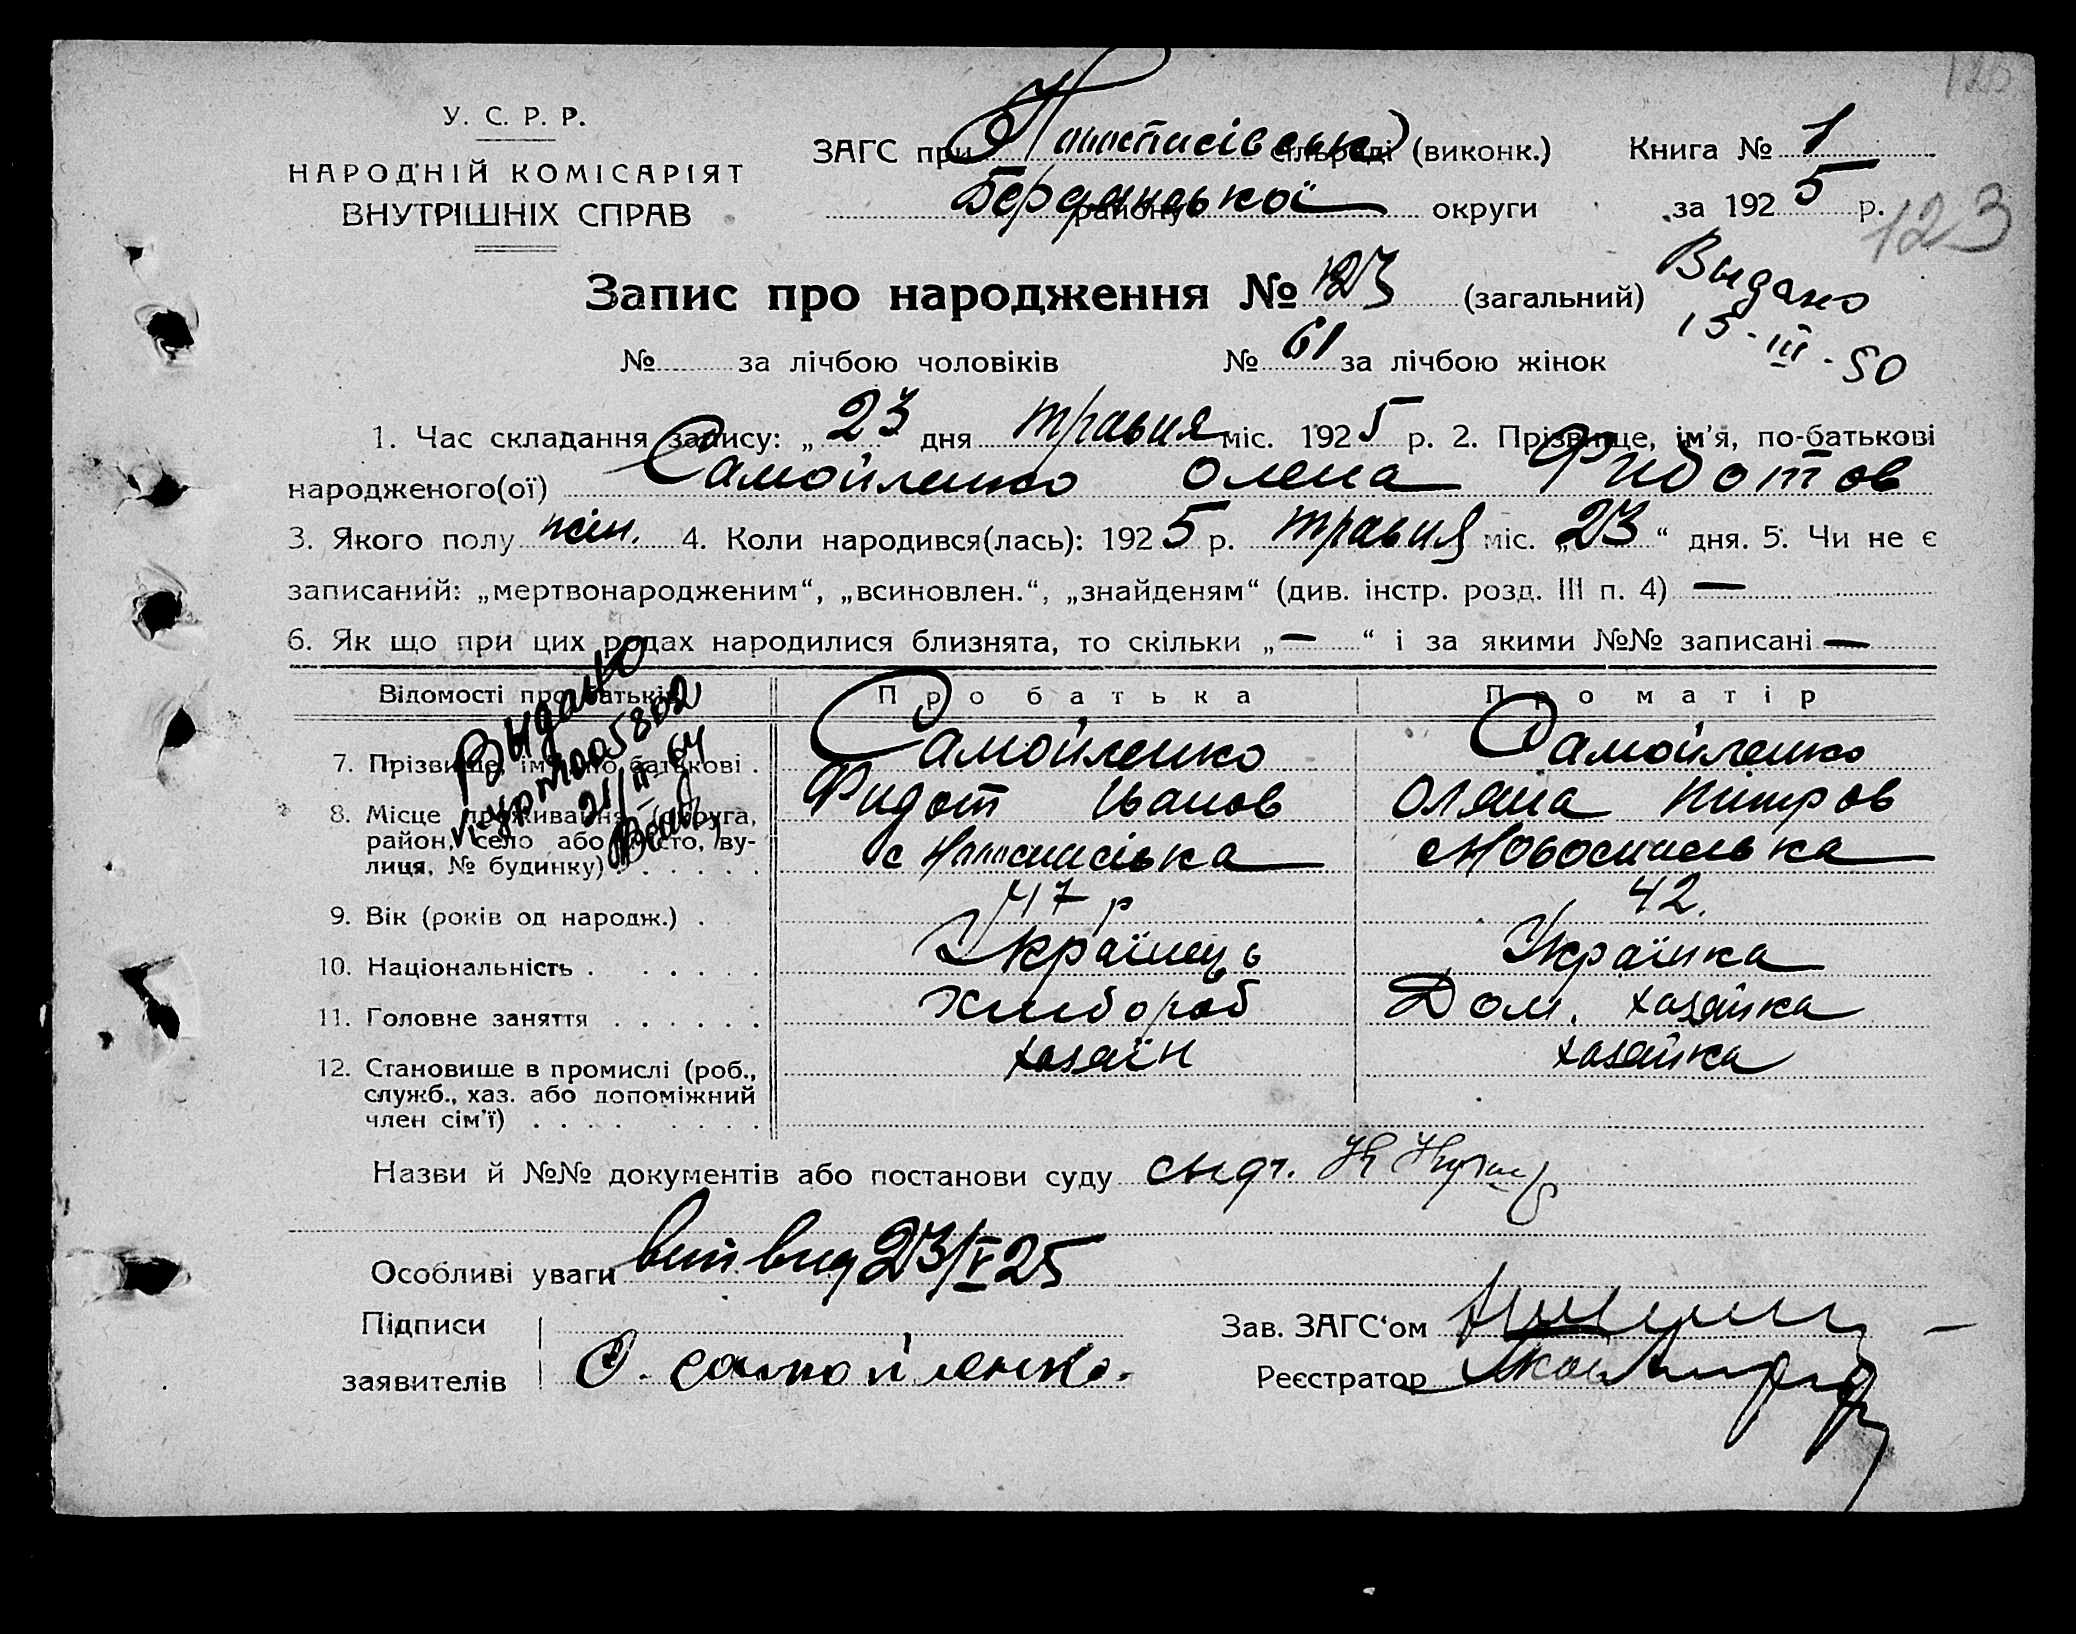 У. С. Р. Р.
НАРОДНІЙ КОМІСАРІЯТ
ВНУТРІШНІХ СПРАВ
ЗАГС при сільраді (виконк.)
Бердянської району округи
Книга № 1
за 1925 р.
123
Запис про народження № 123 (загальний)
Выдано
15-III-50
№ за лічбою чоловіків № 61 за лічбою жінок
1. Час складання запису: „23" дня травня міс. 1925 р. 2. Прізвище, ім'я, по-батькові
народженого(ої) Самойленко Олена Фидотов
3. Якого полу жін. 4. Коли народився(лась): 1925 р. травня міс. „23“ дня. 5. Чи не є
записаний: „мертвонародженим“, „всиновлен.“, „знайденям“ (див. інстр. розд. III п. 4) —
6. Як що при цих родах народилися близнята, то скільки „—“ і за якими №№ записані —
Відомості про батьків Про батька Про матір
Выдано
005802
21/II-64
7. Прізвище, ім'я, по батькові . Самойленко Самойленко
Фидот Іванов Оляна Питров
8. Місце проживання (округа,
район, село або місто, ву-
лиця, № будинку) . . . . . .
с Новоспасівка
9. Вік (років од народж.) . 47 р 42.
10. Національність . . . . . Українець Українка
11. Головне заняття . . . . . . Хлибороб Дом. хазяйка
12. Становище в промислі (роб.,
служб., хаз. або допоміжний
член сім'ї) . . . . . . . .
хазяїн хазяйка
Назви й №№ документів або постанови суду
Особливі уваги 23/V 25
Підписи
заявителів О. Самойленко.
Зав. ЗАГС‘ом
Реєстратор